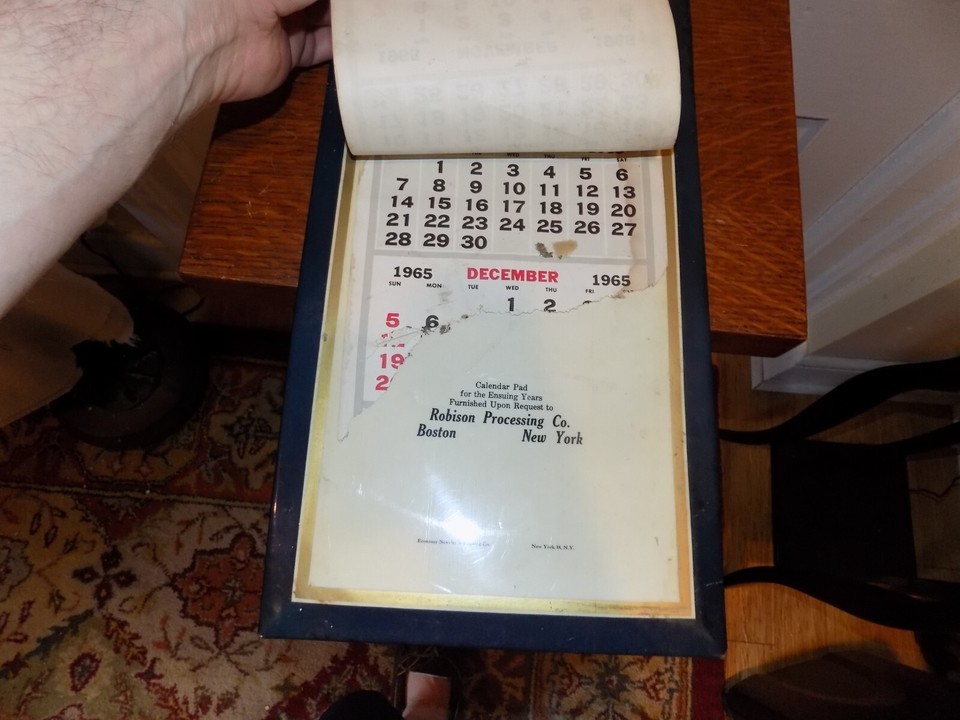 WED THU FRI SAT
1 2 3 4 5 6
7 8 9 10 11 12 13
14 15 16 17 18 19 20
21 22 23 24 25 26 27
28 29 30
1965 DECEMBER 1965
SUN MON TUE WED THU FRI
1 2
5 6
19
2
Calendar Pad
for the Ensuing Years
Furnished Upon Request to
Robison Processing Co.
Boston New York
New York 16, N.Y.